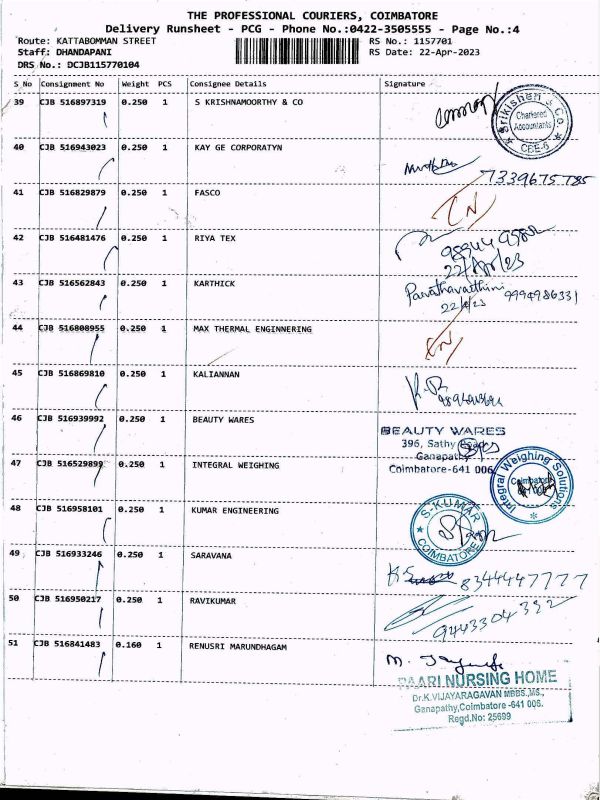 THE PROFESSIONAL COURIERS, COIMBATORE
Delivery Runsheet - PCG - Phone No.:0422-3505555 - Page No.:4
Route: KATTABOMMAN STREET RS No.: 1157701
Staff: DHANDAPANI RS Date: 22-Apr-2023
DRS No.: DCJB115770104
S No Consignment No Weight PCS Consignee Details Signature
39 CJB 516897319 0.250 1 S KRISHNAMOORTHY & CO
Srikishen & Co.
Chartered
Accountants
CBE-6
40 CJB 516943023 0.250 1 KAY GE CORPORATYN
7339675785
41 CJB 516829879 0.250 1 FASCO
IN
42 CJB 516481476 0.250 1 RIYA TEX
22/Apr/23
43 CJB 516562843 0.250 1 KARTHICK
22/4/23 9994986331
44 CJB 516808955 0.250 1 MAX THERMAL ENGINNERING
IN
45 CJB 516869810 0.250 1 KALIANNAN
46 CJB 516939992 0.250 1 BEAUTY WARES
BEAUTY WARES
396, Sathy Road,
Ganapathy
Coimbatore-641 006
47 CJB 516529899 0.250 1 INTEGRAL WEIGHING
Integral Weighing Solutions
Coimbatore
48 CJB 516958101 0.250 1 KUMAR ENGINEERING
S-KUMAR
COIMBATORE
49 CJB 516933246 0.250 1 SARAVANA
8344447777
50 CJB 516950217 0.250 1 RAVIKUMAR
9443304392
51 CJB 516841483 0.160 1 RENUSRI MARUNDHAGAM
PAARI NURSING HOME
Dr.K.VIJAYARAGAVAN MBBS.,MS.,
Ganapathy,Coimbatore -641 006.
Regd.No: 25699